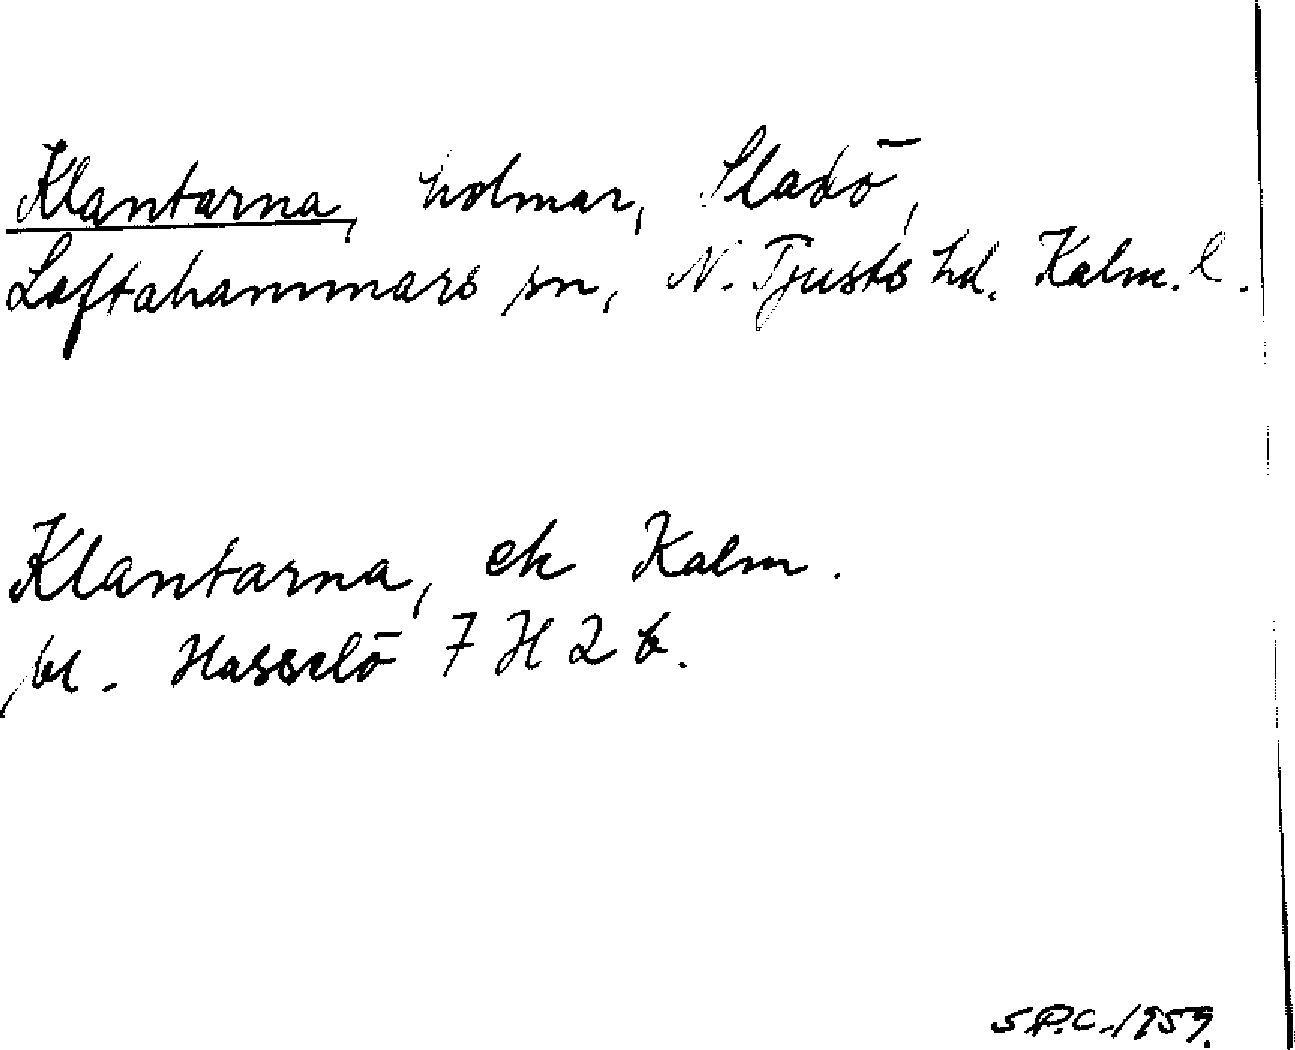 Klantarna, holmar, Sladö,
Loftahammars sn, N. Tjusts hd. Kalm. l.
Klantarna, ek Kalm.
bl. Hasselö 7 H 2 b.
S.P.C. 1959.